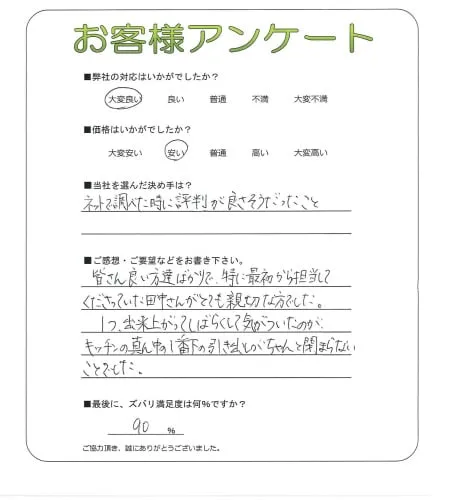 お客様アンケート
■弊社の対応はいかがでしたか?
大変良い 良い 普通 不満 大変不満
■価格はいかがでしたか?
大変安い 安い 普通 高い 大変高い
■当社を選んだ決め手は?
ネットで調べた時に評判が良さそうだったこと
■ご感想・ご要望などをお書き下さい。
皆さん良い方達ばかりで、特に最初から担当して
くださっていた田中さんがとても親切な方でした。
1つ、出来上がってしばらくして気がついたのが、
キッチンの真ん中の1番下の引き出しがちゃんと閉まらない
ことでした。
■最後に、ズバリ満足度は何%ですか?
90 %
ご協力頂き、誠にありがとうございました。